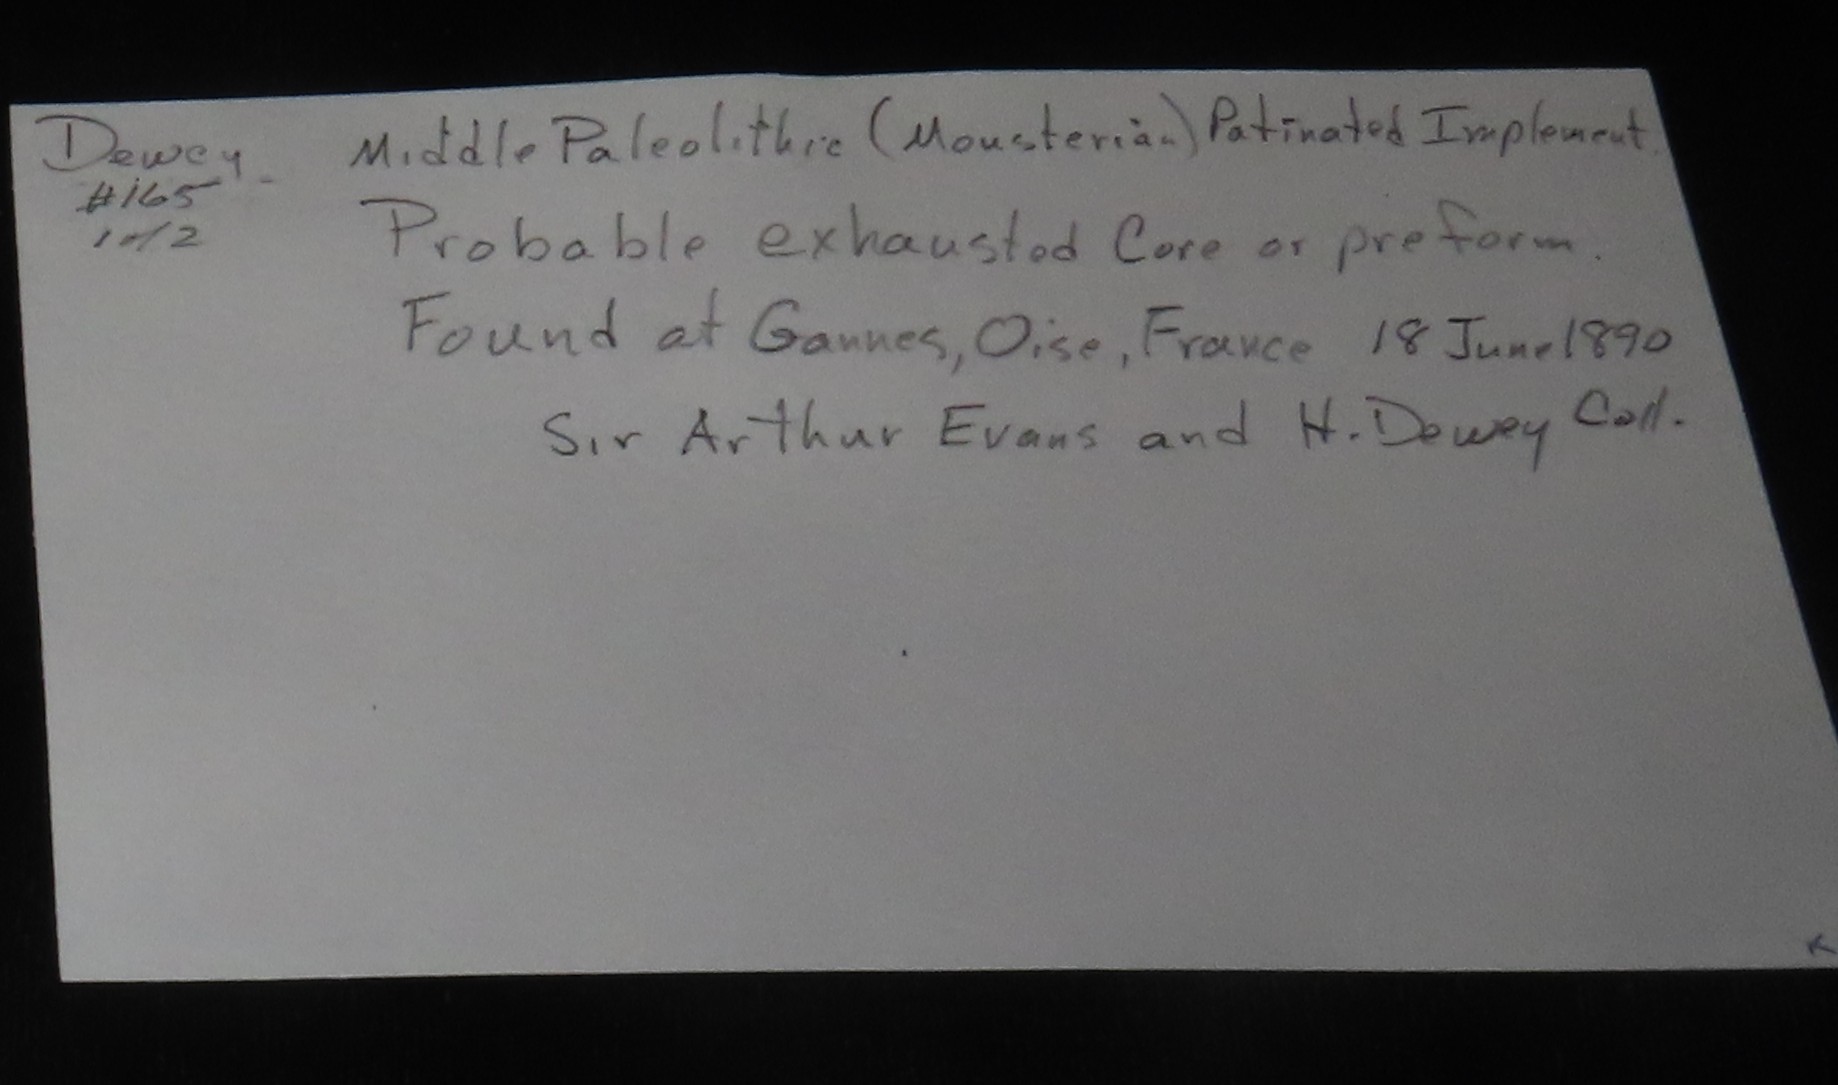 Dewey
#165
1 of 2
Middle Paleolithic (Mousterian) Patinated Implement.
Probable exhausted Core or preform.
Found at Gannes, Oise, France 18 June 1890
Sir Arthur Evans and H. Dewey Coll.
K